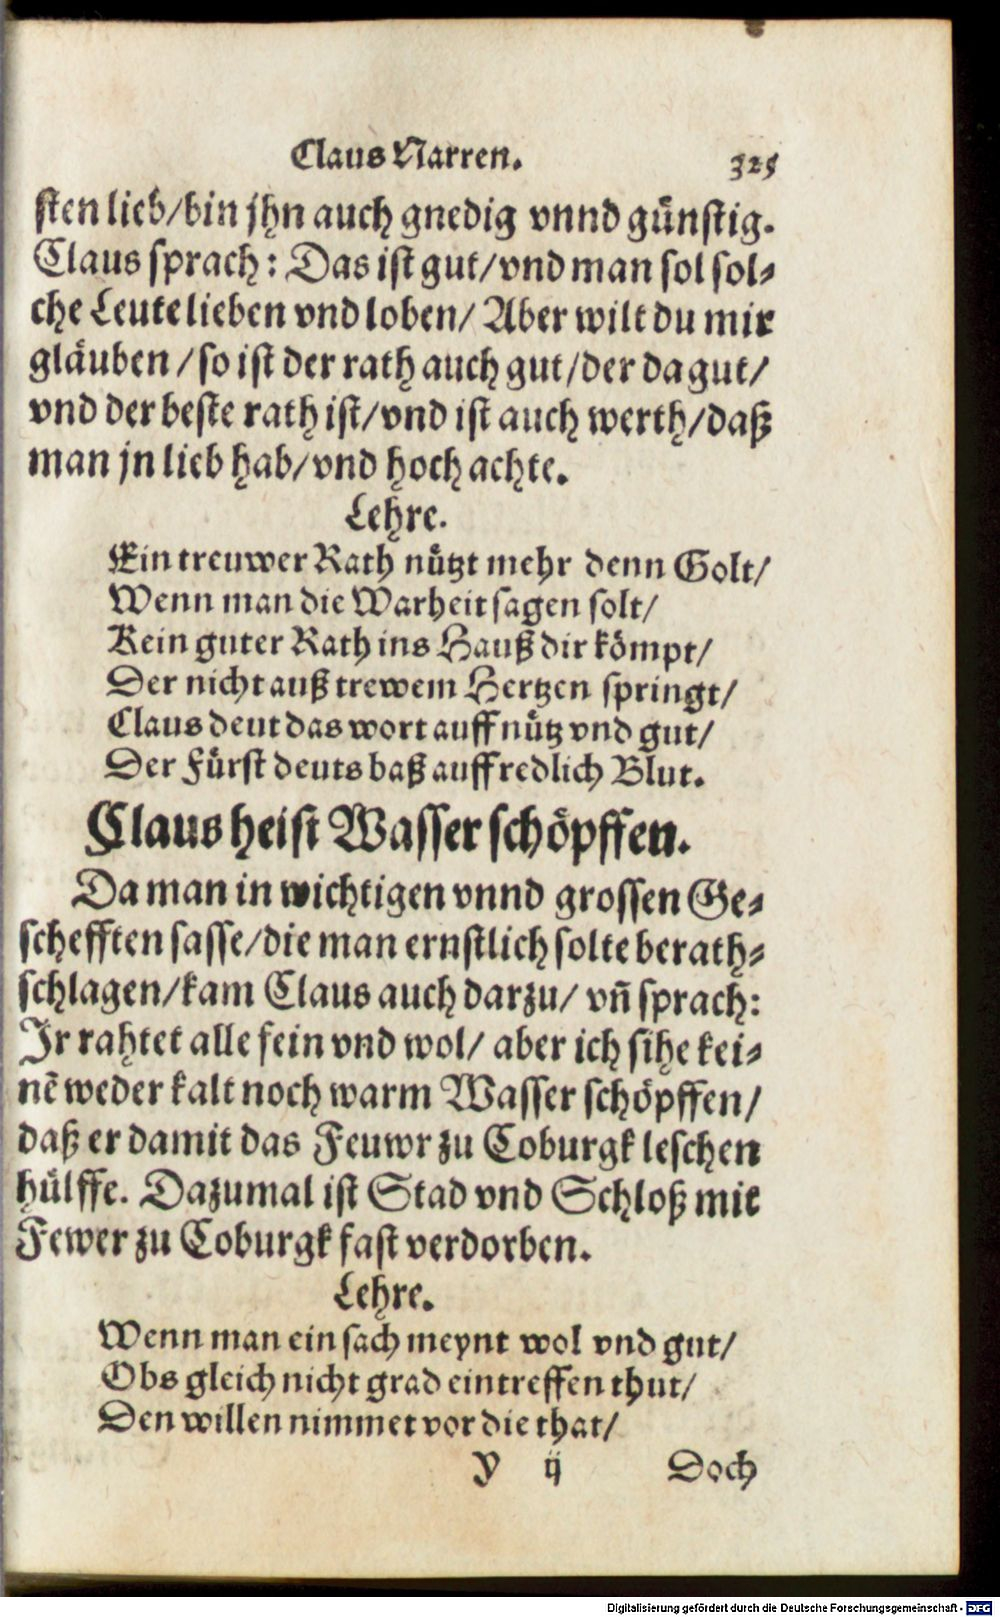 Claus Narren. 325
sten lieb/bin jhn auch gnedig vnnd günstig.
Claus sprach: Das ist gut/vnd man sol sol-
che Leute lieben vnd loben/ Aber wilt du mir
gläuben /so ist der rath auch gut/der da gut/
vnd der beste rath ist/vnd ist auch werth/daß
man jn lieb hab/vnd hoch achte.
Lehre.
Ein treuwer Rath nützt mehr denn Golt/
Wenn man die Warheit sagen solt/
Kein guter Rath ins Hauß dir kömpt/
Der nicht auß trewem Hertzen springt/
Claus deut das wort auff nütz vnd gut/
Der Fürst deuts baß auff redlich Blut.
Claus heist Wasser schöpffen.
Da man in wichtigen vnnd grossen Ge-
schefften sasse/die man ernstlich solte berath-
schlagen/kam Claus auch darzu/ vn̄ sprach:
Ir rahtet alle fein vnd wol/ aber ich sihe kei-
nē weder kalt noch warm Wasser schöpffen/
daß er damit das Feuwr zu Coburgk leschen
hülffe. Dazumal ist Stad vnd Schloß mit
Fewer zu Coburgk fast verdorben.
Lehre.
Wenn man ein sach meynt wol vnd gut/
Obs gleich nicht grad eintreffen thut/
Den willen nimmet vor die that/
Y ij Doch
Digitalisierung gefördert durch die Deutsche Forschungsgemeinschaft - DFG